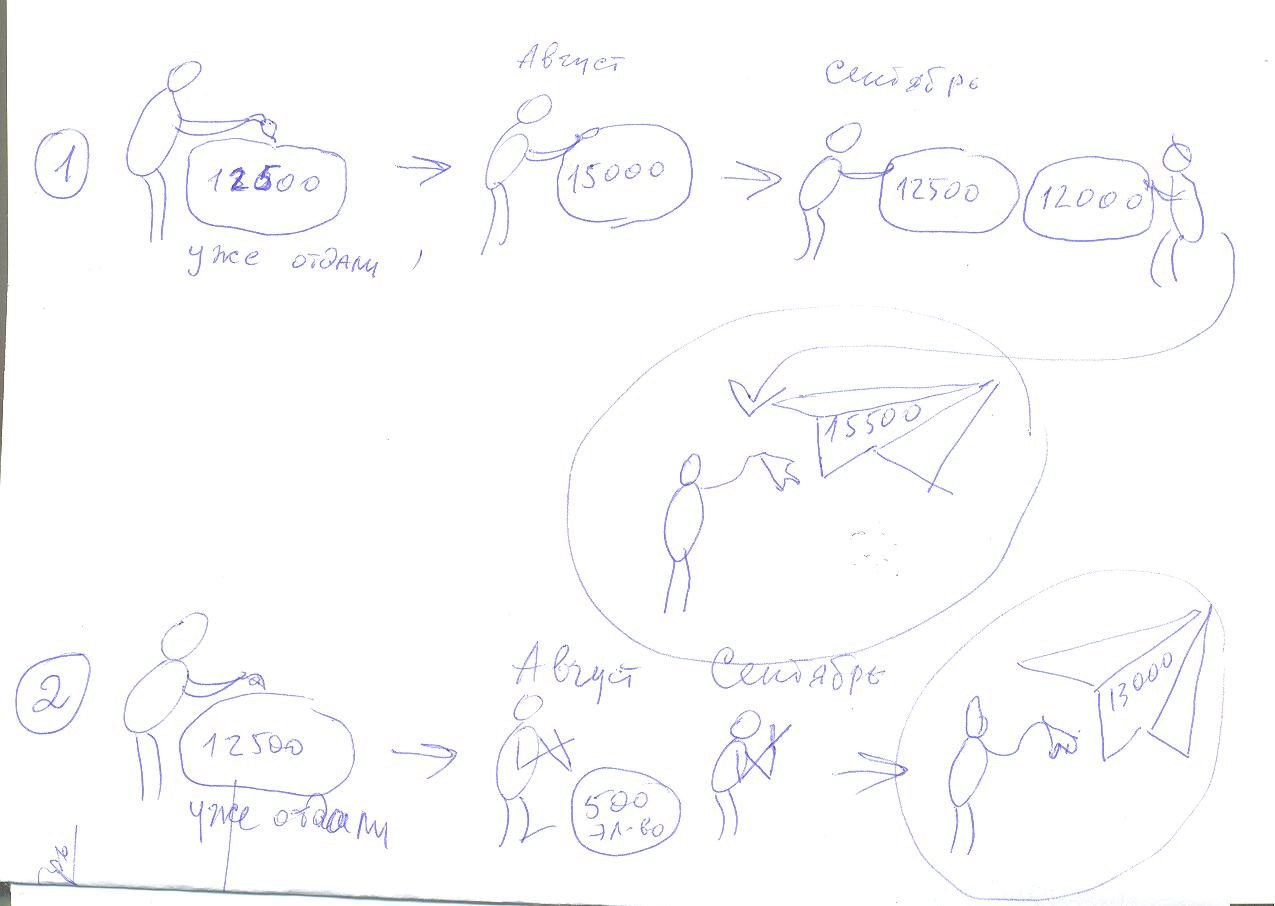 Август
Сентябрь
1
12500
15000
12500
12000
уже отдали
15500
Август
Сентябрь
2
12500
13000
уже отдали
500
эл-во